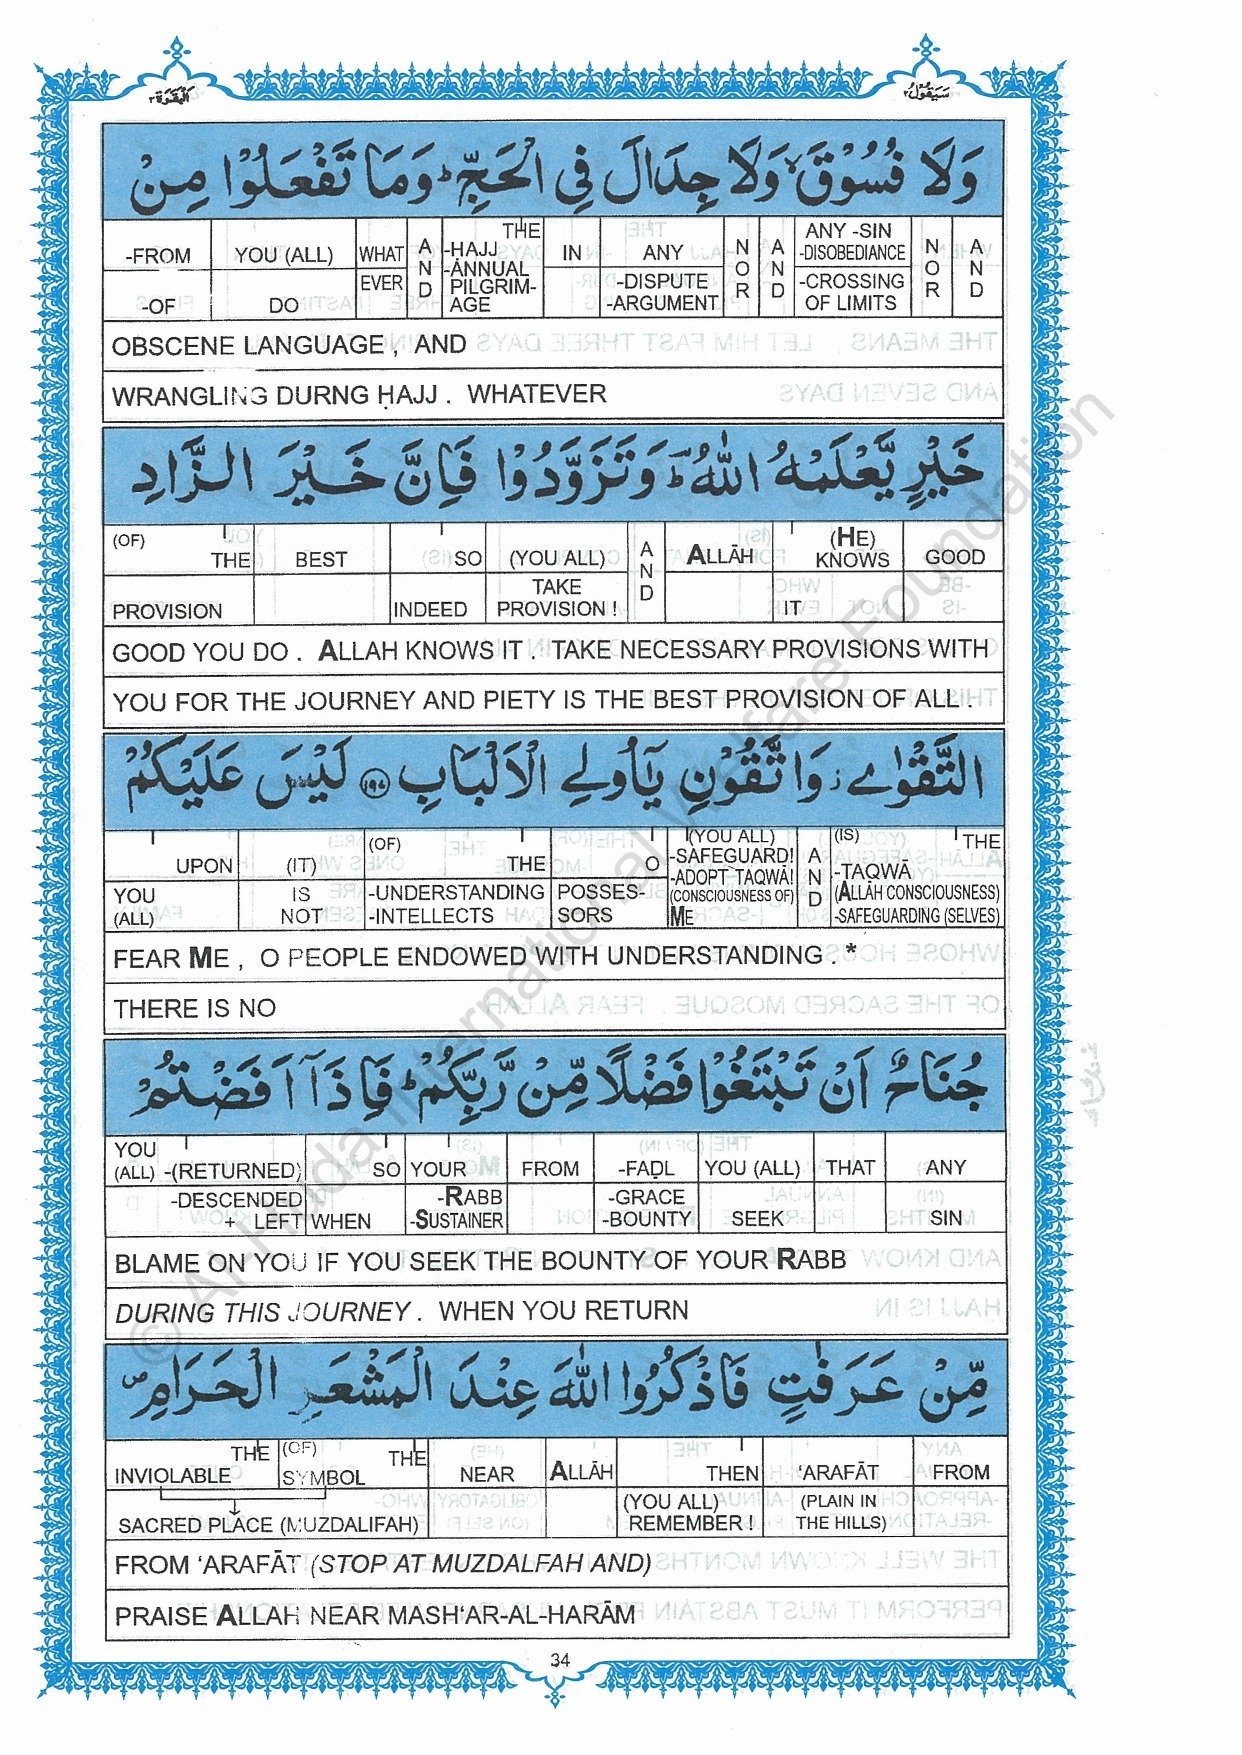 البقرة ٢
سيقول ٢
وَلَا فُسُوْقَ ۙ وَلَا جِدَالَ فِي الْحَجِّ ؕ وَمَا تَفْعَلُوْا مِنْ
-FROM YOU (ALL) WHAT AND -ḤAJJ THE IN ANY NOR AND ANY -SIN -DISOBEDIANCE NOR AND
-OF DO EVER -ANNUAL PILGRIM- AGE -DISPUTE -ARGUMENT -CROSSING OF LIMITS
OBSCENE LANGUAGE , AND
WRANGLING DURNG ḤAJJ . WHATEVER
خَيْرٍ يَّعْلَمْهُ اللّٰهُ ؕ وَتَزَوَّدُوْا فَاِنَّ خَيْرَ الزَّادِ
(OF) THE BEST SO (YOU ALL) AND ALLĀH (HE) KNOWS GOOD
PROVISION INDEED TAKE PROVISION ! IT
GOOD YOU DO . ALLAH KNOWS IT . TAKE NECESSARY PROVISIONS WITH
YOU FOR THE JOURNEY AND PIETY IS THE BEST PROVISION OF ALL .
التَّقْوٰى ز وَاتَّقُوْنِ يٰۤاُولِي الْاَلْبَابِ ١٩٧ لَيْسَ عَلَيْكُمْ
UPON (IT) (OF) THE O (YOU ALL) -SAFEGUARD! -ADOPT TAQWĀ! AND (IS) THE -TAQWĀ
YOU (ALL) IS NOT -UNDERSTANDING -INTELLECTS POSSES- SORS (CONSCIOUSNESS OF) ME (ALLĀH CONSCIOUSNESS) -SAFEGUARDING (SELVES)
FEAR ME , O PEOPLE ENDOWED WITH UNDERSTANDING . *
THERE IS NO
جُنَاحٌ اَنْ تَبْتَغُوْا فَضْلًا مِّنْ رَّبِّكُمْ ؕ فَاِذَاۤ اَفَضْتُمْ
YOU (ALL) -(RETURNED) SO YOUR FROM -FAḌL YOU (ALL) THAT ANY
-DESCENDED + LEFT WHEN -RABB -SUSTAINER -GRACE -BOUNTY SEEK SIN
BLAME ON YOU IF YOU SEEK THE BOUNTY OF YOUR RABB
DURING THIS JOURNEY . WHEN YOU RETURN
مِّنْ عَرَفٰتٍ فَاذْكُرُوا اللّٰهَ عِنْدَ الْمَشْعَرِ الْحَرَامِ ص
THE INVIOLABLE (OF) SYMBOL THE NEAR ALLĀH THEN ‘ARAFĀT FROM
SACRED PLACE (MUZDALIFAH) (YOU ALL) REMEMBER ! (PLAIN IN THE HILLS)
FROM ‘ARAFĀT (STOP AT MUZDALFAH AND)
PRAISE ALLAH NEAR MASH‘AR-AL-HARĀM
34
© Al-Huda International Welfare Foundation